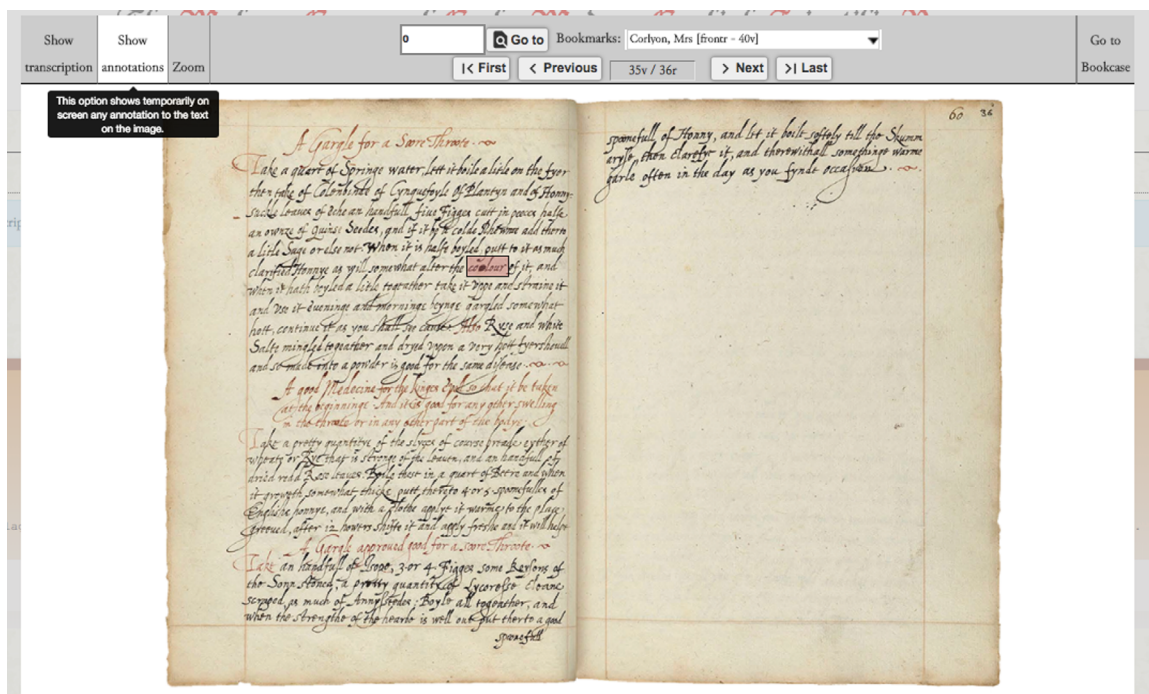 Show transcription
Show annotations
Zoom
0
Go to
Bookmarks:
Corlyon, Mrs [frontr - 40v]
|< First
< Previous
35v / 36r
> Next
>| Last
Go to Bookcase
This option shows temporarily on
screen any annotation to the text
on the image.
A Gargle for a Sore Throte
Take a quart of Springe water, lett it boile a litle on the fyer
then take of Colenbinde of Cynquefoyle of Plantyn and of Honny-
suckle leaues of eche an handfull, fiue Figges cutt in peeces halfe
an ownze of Quinse Seedes, and if it be a colde Rhewme add therto
a litle Sage or else not. When it is halfe boyled, putt to it as much
clarified Honnye as will somewhat alter the colour of it, and
when it hath boyled a litle togeather take it vppe and straine it
and vse it Eueninge and morninge beynge gargled somewhat
hott, continue it as you shall see cause. Also Ryse and white
Salte mingled togeather and dryed vpon a very hott fyershouell
and so made into a powder is good for the same disease
A good Medecine for the Kinges Euill so that it be taken
at the beginninge And it is good for any other swelling
in the throote or in any other part of the bodye
Take a pretty quantitye of the slyces of course breade eyther of
wheate or Rye that is stronge of the leauen, and an handfull of
dried redd Rose leaues. Boyle these in a quart of Beere and when
it groweth somewhat thicke putt therto 4 or 5 spoonefulles of
Englishe honnye, and with a clothe applye it warme to the place
greeued, after 12 howers shifte it and apply freshe and it will helpe
A Gargle approued good for a sore Throote
Take an handfull of Isope, 3 or 4 Figges some Reysons of
the Sonn stoned, a pretty quantity of Lycoresse cleane
scraped, as much of Annyseedes: Boyle all togeather, and
when the strengthe of the hearbe is well out put therto a good
spoonefull
60
36
spoonefull of Honny, and let it boile softely till the Skumm
aryse, then clarefye it, and therewithall somethinge warme
garle often in the day as you fynde occasion